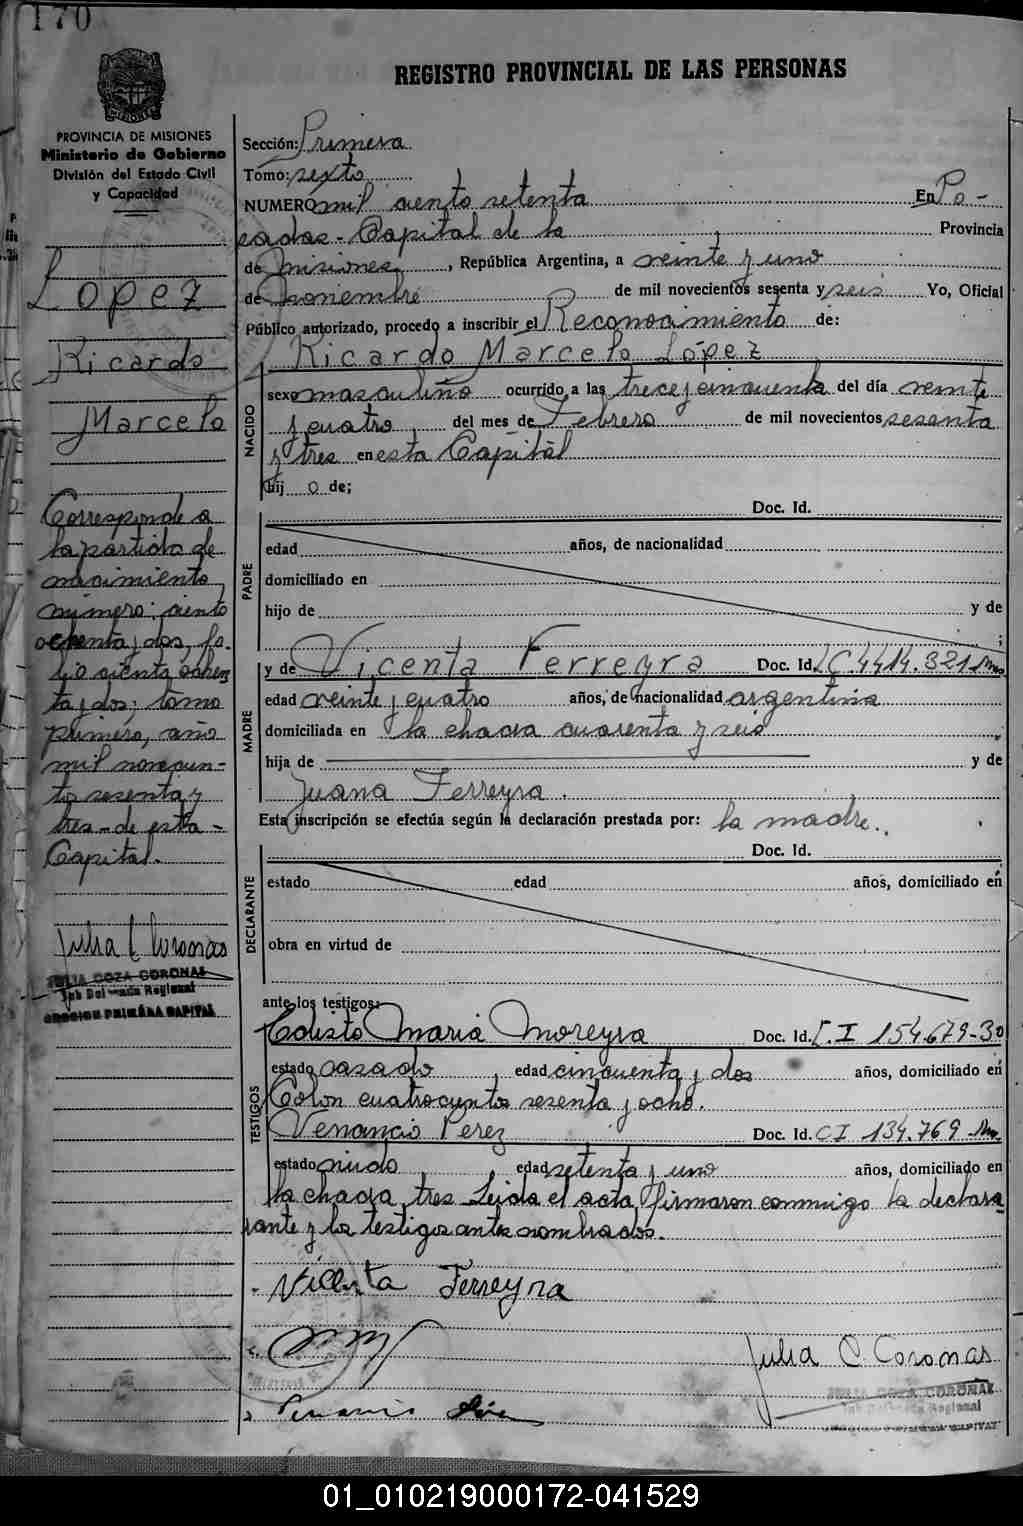 170
REGISTRO PROVINCIAL DE LAS PERSONAS
MISIONES
PROVINCIA DE MISIONES
Ministerio de Gobierno
División del Estado Civil
y Capacidad
Lopez
Ricardo
Marcelo
Corresponde a
la partida de
nacimiento
número: ciento
ochenta y dos, fo-
lio ciento ochen
ta y dos; tomo
primero, año
mil novecien-
to sesenta y
tres - de esta -
Capital.
Julia C Coronas
JULIA COZA CORONAS
Sub Delegada Regional
SECCION PRIMERA CAPITAL
Sección: Primera
Tomo: sexto
NUMERO mil ciento setenta En Po-
sadas - Capital de la Provincia
de Misiones, República Argentina, a veinte y uno
de noviembre de mil novecientos sesenta y seis Yo, Oficial
Público autorizado, procedo a inscribir el Reconocimiento de:
Ricardo Marcelo López
NACIDO
sexo masculino ocurrido a las trece y cincuenta del día veinte
y cuatro del mes de Febrero de mil novecientos sesenta
y tres en esta Capital
hij o de;
PADRE
Doc. Id.
edad años, de nacionalidad
domiciliado en
hijo de y de
;
MADRE
y de Vicenta Ferreyra Doc. Id. L C. 4414.321
edad veinte y cuatro años, de nacionalidad argentina
domiciliada en la chacra cuarenta y seis
hija de y de
Juana Ferreyra.
Esta inscripción se efectúa según la declaración prestada por: la madre.
DECLARANTE
Doc. Id.
estado edad años, domiciliado en
obra en virtud de
ante los testigos:
TESTIGOS
Maria Moreyra Doc. Id. C. I 154.679-30
estado casado, edad cincuenta y dos años, domiciliado en
Colon cuatrocientos sesenta y ocho.
Venancio Perez Doc. Id. CI 134.769
estado viudo, edad setenta y uno años, domiciliado en
la chacra tres Leida el acta, firmaron conmigo la declara
rante y los testigos antes nombrados.
Vicenta Ferreyra
Julia C. Coronas
JULIA COZA CORONAS
Sub Delegada Regional
SECCION PRIMERA CAPITAL
01_010219000172-041529